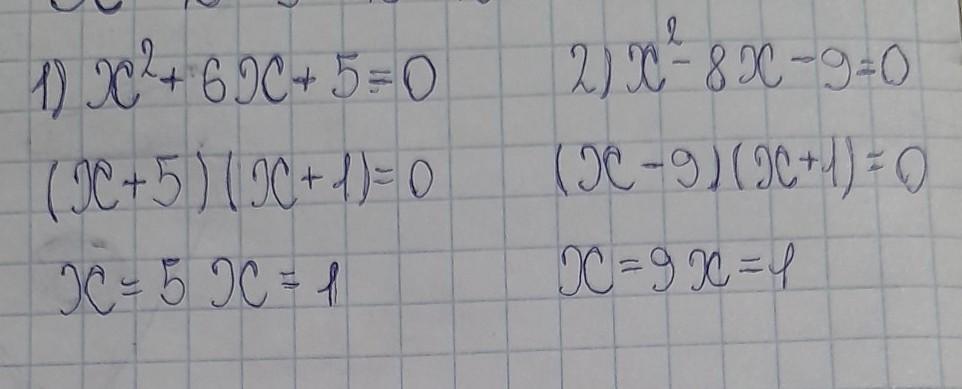 1) x²+6x+5=0
(x+5)(x+1)=0
x=5 x=1
2) x²-8x-9=0
(x-9)(x+1)=0
x=9 x=1